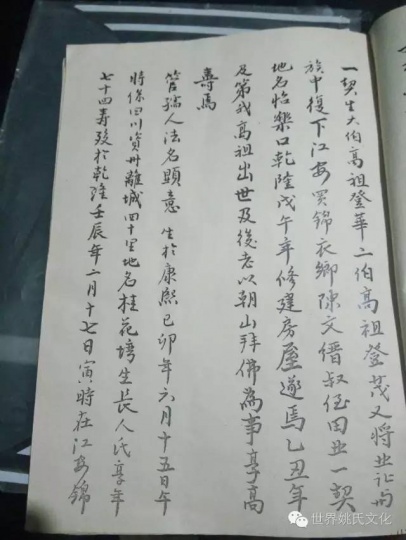 一契生大伯高祖登華二伯高祖登茂又將业讣与
族中復下江安買錦衣鄉陳文僭叔侄田业一契
地名怡樂口乾隆戊午年修建房屋遂焉乙丑年
及第我高祖出世及後老以朝山拜佛為事享高
壽焉
管孺人法名顕意生於康熙己卯年六月十五日午
時係四川資州離城四十里地名桂花塆生長人氏享年
七十四壽殁於乾隆壬辰年二月十七日寅時在江安錦
世界姚氏文化